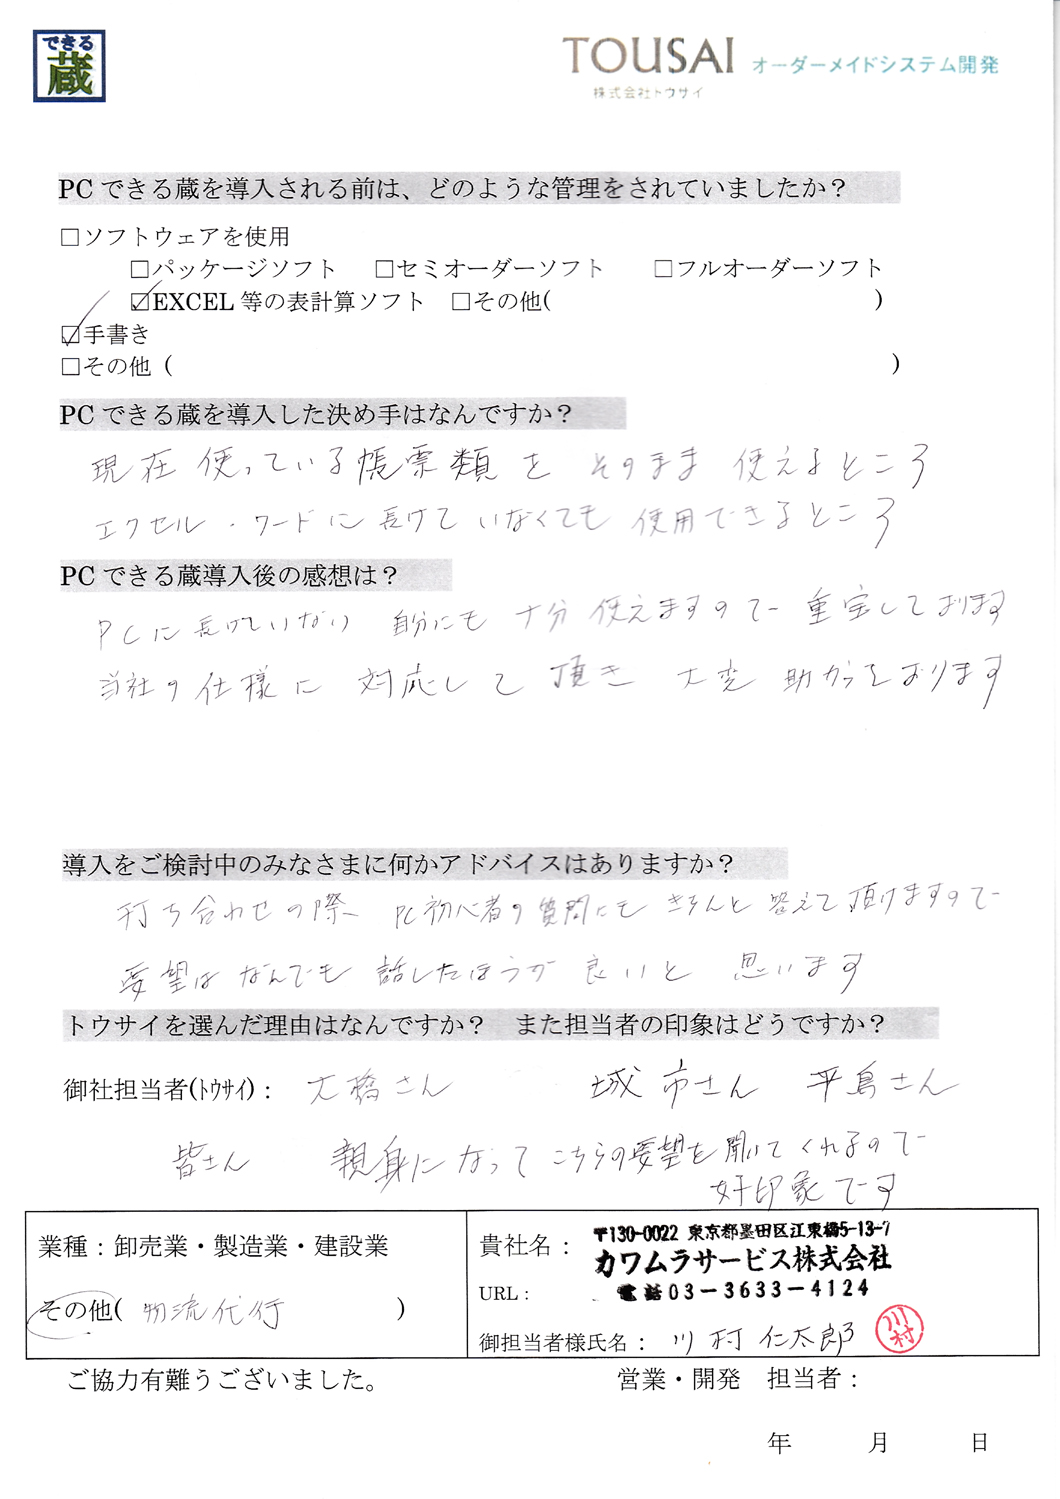 できる
蔵
TOUSAI オーダーメイドシステム開発
株式会社トウサイ
PCできる蔵を導入される前は、どのような管理をされていましたか？
□ソフトウェアを使用
□パッケージソフト □セミオーダーソフト □フルオーダーソフト
☑EXCEL等の表計算ソフト □その他( )
☑手書き
□その他 ( )
PCできる蔵を導入した決め手はなんですか？
現在使っている帳票類をそのまま使えるところ
エクセル・ワードに長けていなくても使用できるところ
PCできる蔵導入後の感想は？
PCに長けていない自分にも十分使えますので重宝しております
当社の仕様に対応して頂き大変助かっております
導入をご検討中のみなさまに何かアドバイスはありますか？
打ち合わせの際 PC初心者の質問にもきちんと答えて頂けますので
要望はなんでも話したほうが良いと思います
トウサイを選んだ理由はなんですか？ また担当者の印象はどうですか？
御社担当者(ﾄｳｻｲ)： 大橋さん 城市さん 平島さん
皆さん 親身になってこちらの要望を聞いてくれるので
好印象です
業種：卸売業・製造業・建設業
その他( 物流代行 )
貴社名： 〒130-0022 東京都墨田区江東橋5-13-7
カワムラサービス株式会社
URL： 電話03-3633-4124
御担当者様氏名： 川村 仁太郎 川村
ご協力有難うございました。 営業・開発 担当者：
年 月 日